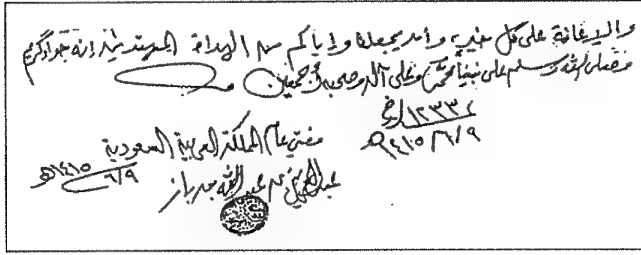 والإعانة على كل خير، وأن يجعلنا وإياكم من الهداة المهتدين إنه جواد كريم
وصلى الله وسلم على نبينا محمد وعلى آله وصحبه أجمعين
١٢٣٣٢/خ
١٤١٥/٦/٩هـ
مفتي عام المملكة العربية السعودية
عبدالعزيز بن عبدالله بن باز
٦/٩/١٤١٥هـ